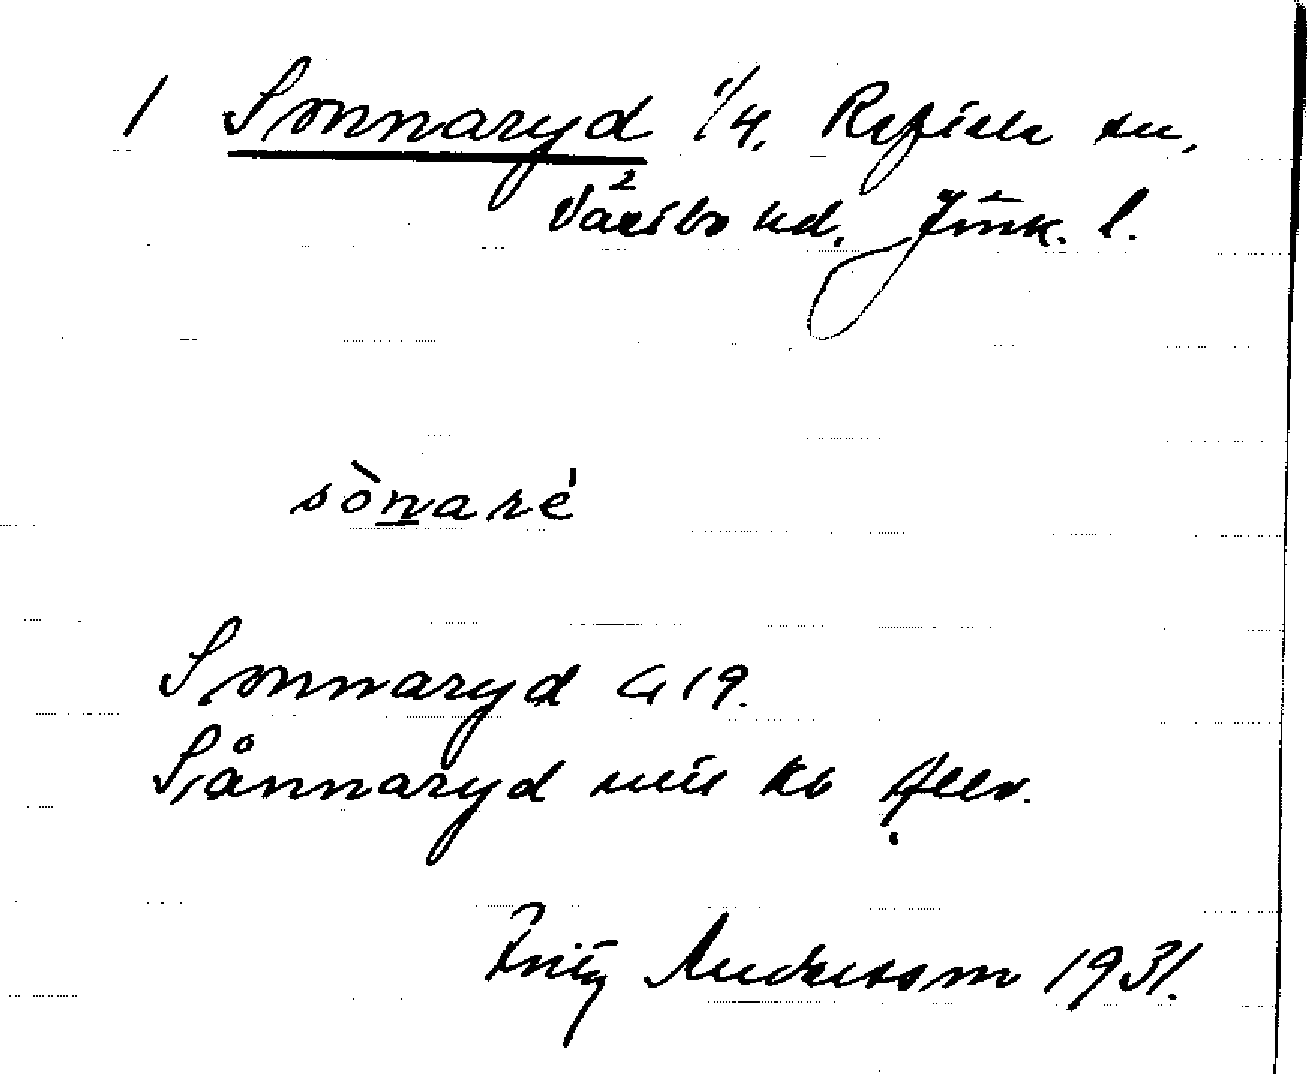 1 Sonnaryd 1/4. Reftele sn,
Västbo hd, Jönk. l.
sònaré
Sonnaryd G 19.
Sånnaryd
Fritz Andersson 1931.